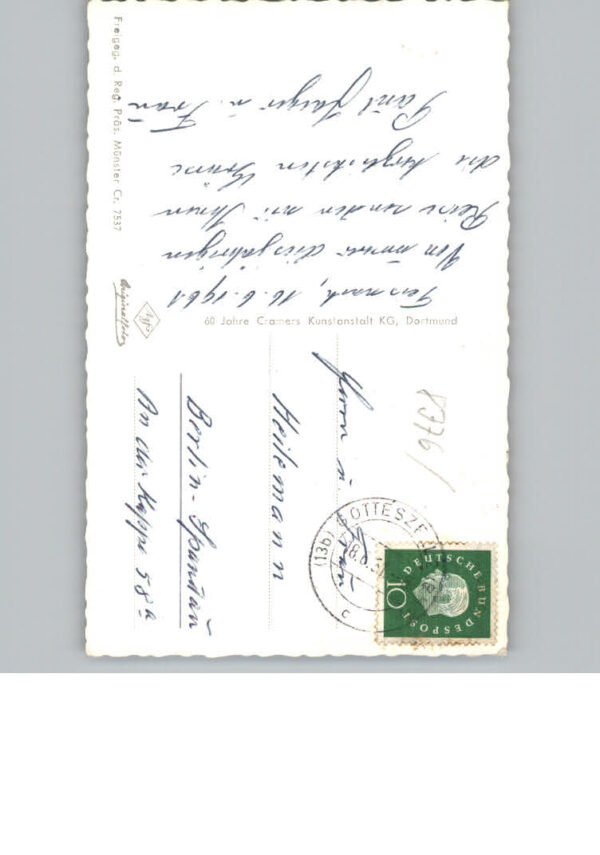 Freigeg. d. Reg. Präs. Münster Cr. 7537
Originalfoto
Agfa
60 Jahre Cramers Kunstanstalt KG, Dortmund
16.6.1961
Von unserer diesjährigen
Reise senden wir Ihnen
die herzlichsten Grüße
Paul Jaeger u. Frau
Herrn u.
Frau
Heilemann
Berlin-Spandau
An der Kappe 58a
8376/
(13b) GOTTESZELL
DEUTSCHE BUNDESPOST
10